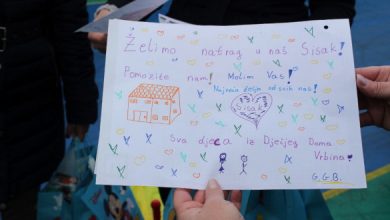 Želimo natrag u naš Sisak!
Pomozite nam! Molim Vas!
Najveća želja od svih nas!
Sisak
Sva djeca iz Dječjeg Doma
Vrbina!
G.G.B.